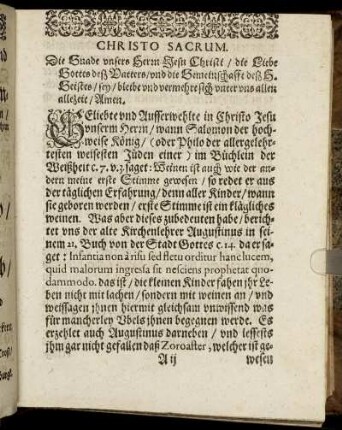 CHRISTO SACRUM.
Die Gnade vnsers Herrn Jesu Christi / die Liebe
Gottes deß Vatters / vnd die Gemeinschafft deß H.
Geistes / sey / bleibe vnd vermehre sich vnter vns allen
allezeit / Amen.
GEliebte vnd Aufferwehlte in Christo Jesu
vnserm Herrn / wann Salomon der hoch-
weise König / (oder Philo der allergelehr-
testen weisesten Jüden einer) im Büchlein der
Weißheit c. 7. v. 3. saget: Weinen ist auch wie der an-
dern meine erste Stimme gewesen / so redet er aus
der täglichen Erfahrung / denn aller Kinder / wann
sie geboren werden / erste Stimme ist ein klägliches
weinen. Was aber dieses zubedeuten habe / berich-
tet vns der alte Kirchenlehrer Augustinus in sei-
nem 21. Buch von der Stadt Gottes c. 14. da er sa-
get: Infantia non à risu sed fletu orditur hanc lucem,
quid malorum ingressa sit nesciens prophetat quo-
dammodo. das ist / die kleinen Kinder fahen jhr Le-
ben nicht mit lachen / sondern mit weinen an / vnd
weissagen jhnen hiermit gleichsam vnwissend was
für mancherley Vbels jhnen begegnen werde. Es
erzehlet auch Augustinus darneben / vnd lessets
jhm gar nicht gefallen daß Zoroaster, welcher ist ge-
A ij
wesen